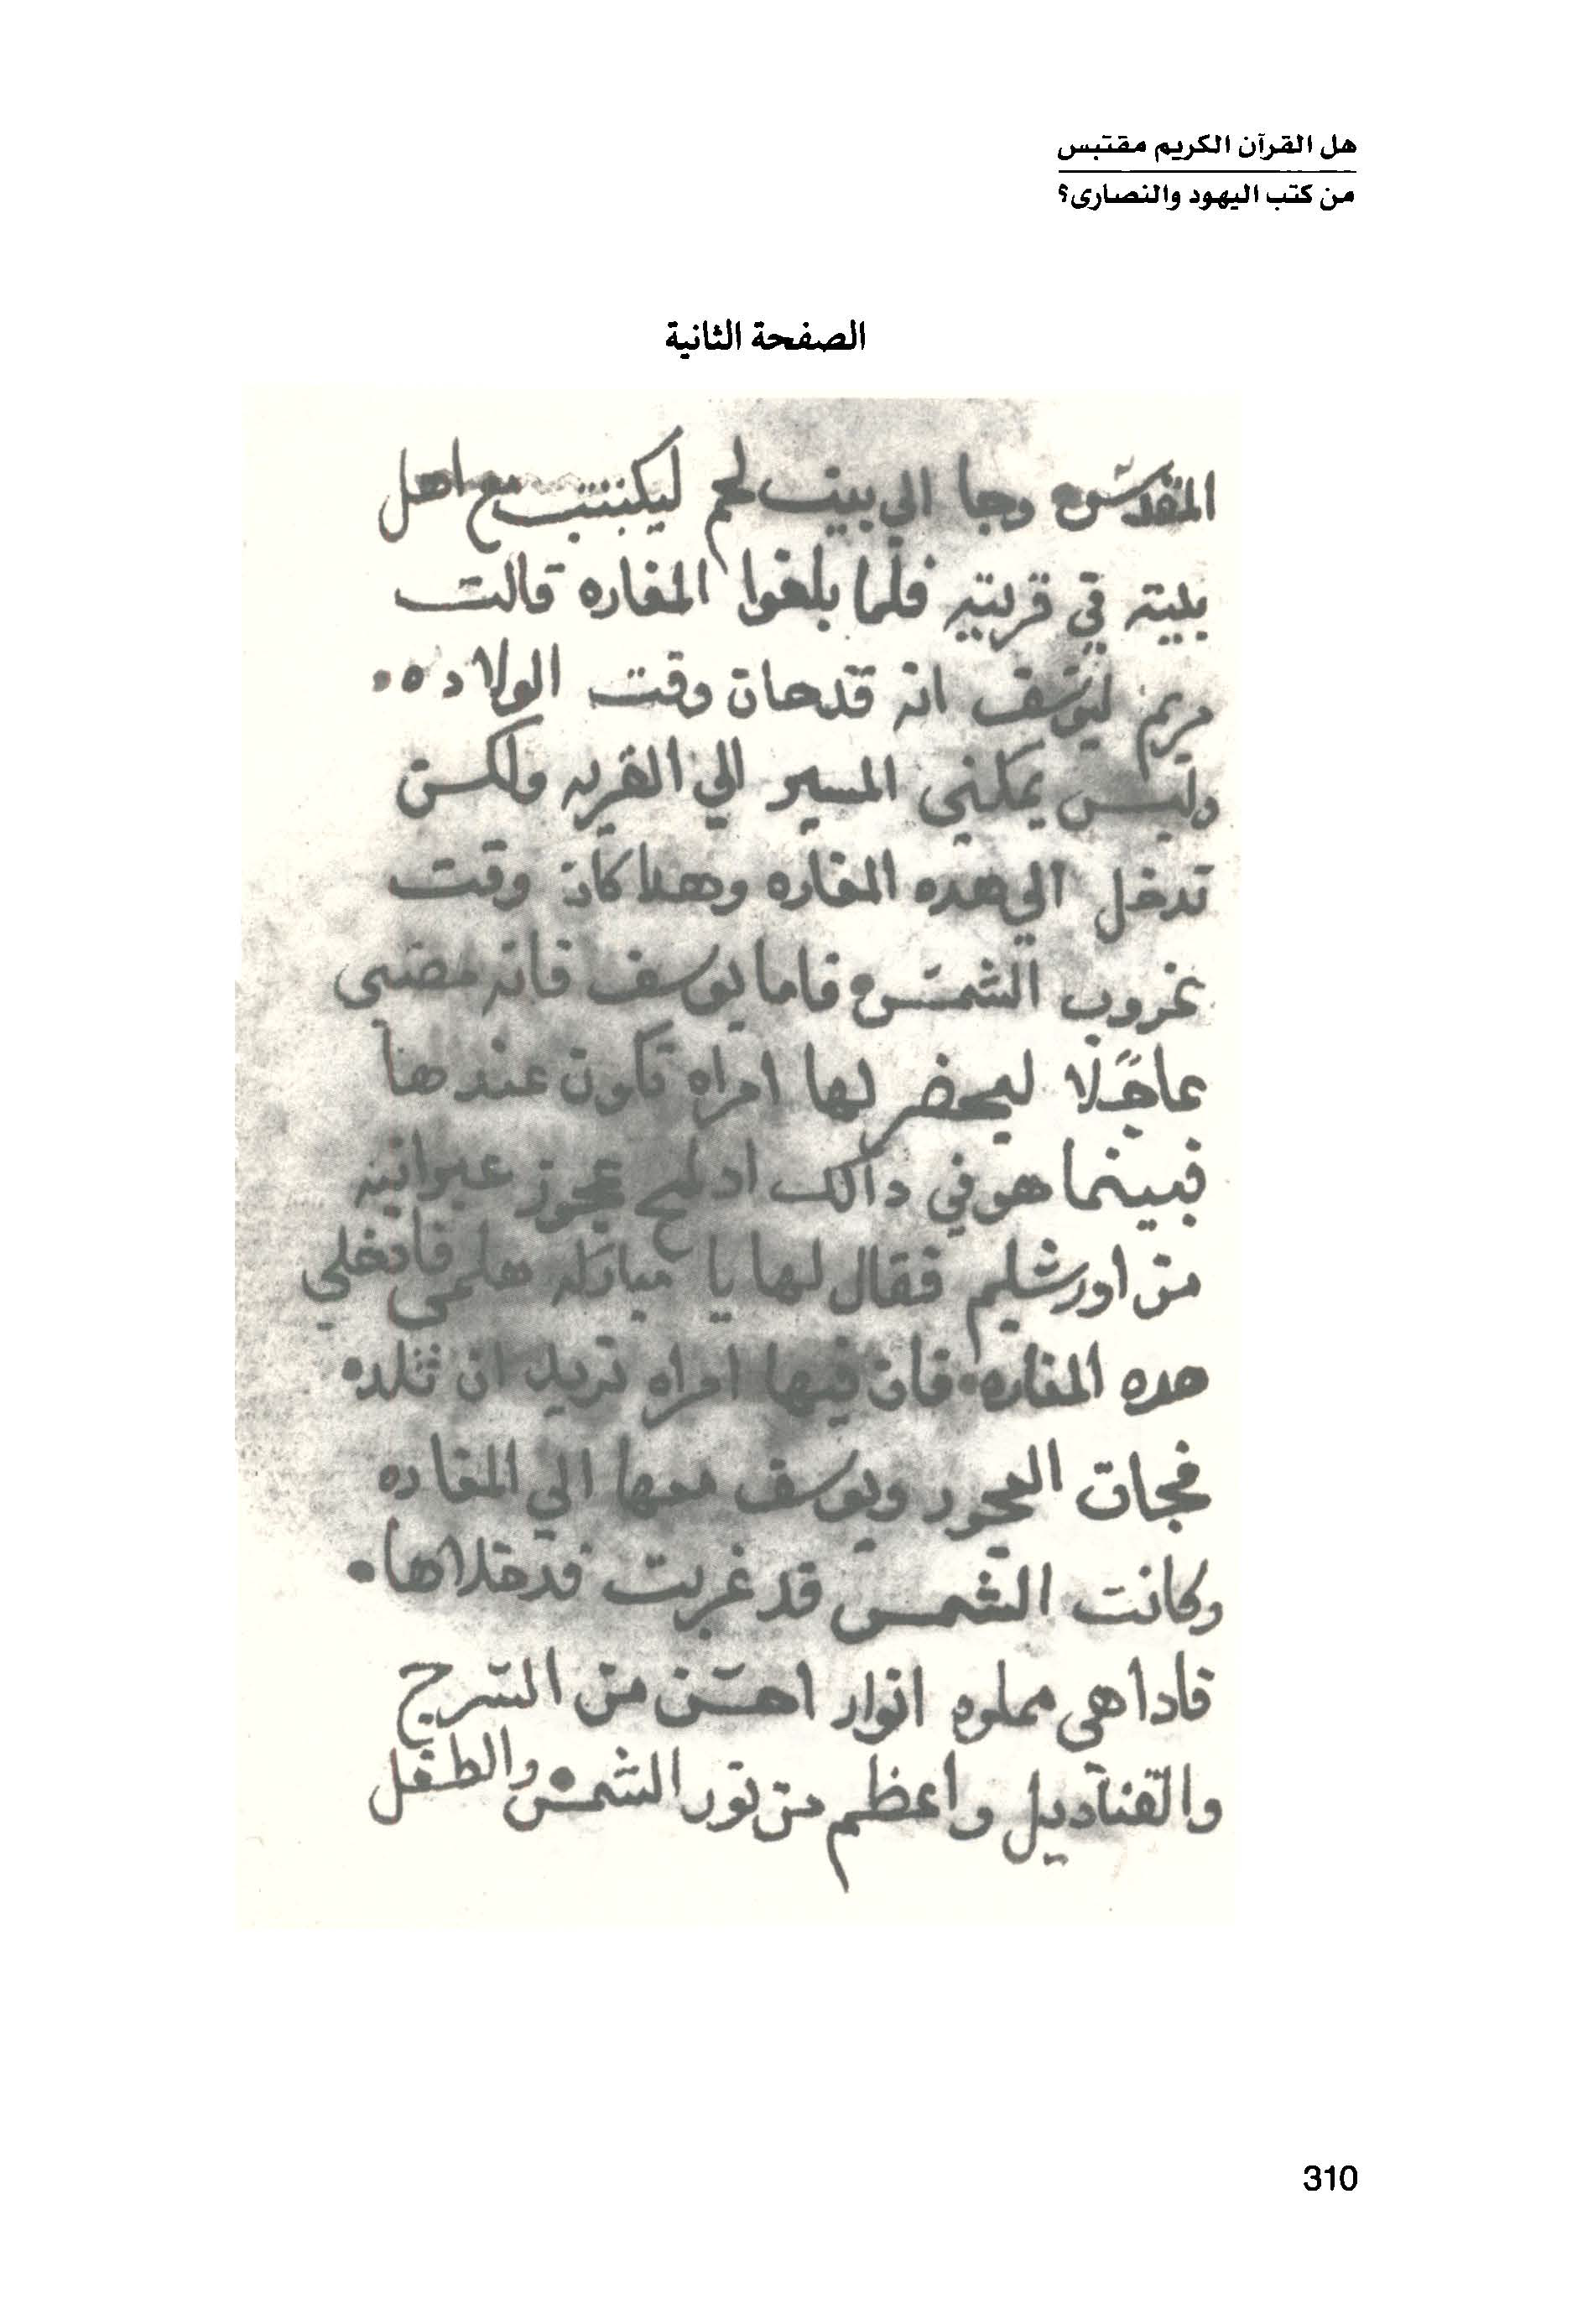 هل القرآن الكريم مقتبس
من كتب اليهود والنصارى؟
الصفحة الثانية
المقدس وجا الي بيت لحم ليكتتب مع اهل
بيته في قريته فلما بلغوا المغاره قالت
مريم ليوسف انه قد حان وقت الولاده
وليس يمكنني المسير الي القريه ولكن
تدخل الي هده المغاره وهدا كان وقت
غروب الشمس فاما يوسف فانه مضي
عاجلا ليحضر لها امراه تكون عندها
فبينما هو في دالك اد لمح عجوز عبرانيه
من اورشليم فقال لها يا مباركه هلمي فادخلي
هده المغاره فان فيها امراه تريد ان تلد
فجات العجوز ويوسف معها الي المغاره
وكانت الشمس قد غربت فدخلاها
فادا هي مملوه انوار احسن من السرج
والقناديل واعظم من نور الشمس والطفل
310